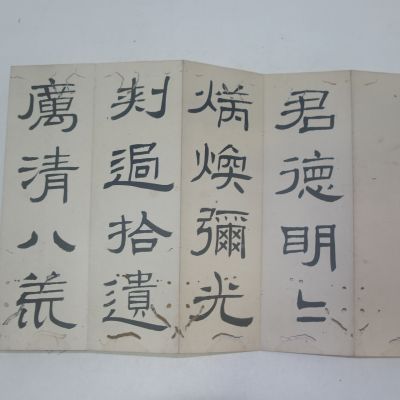 君德明〻
炳煥彌光
刾過拾遺
厲清八荒